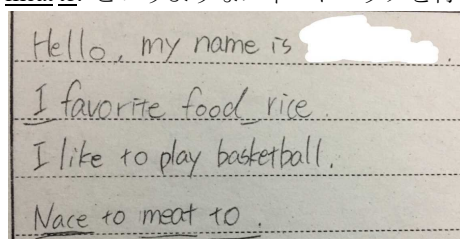 Hello, my name is .
I favorite food rice.
I like to play basketball.
Nace to meat to .